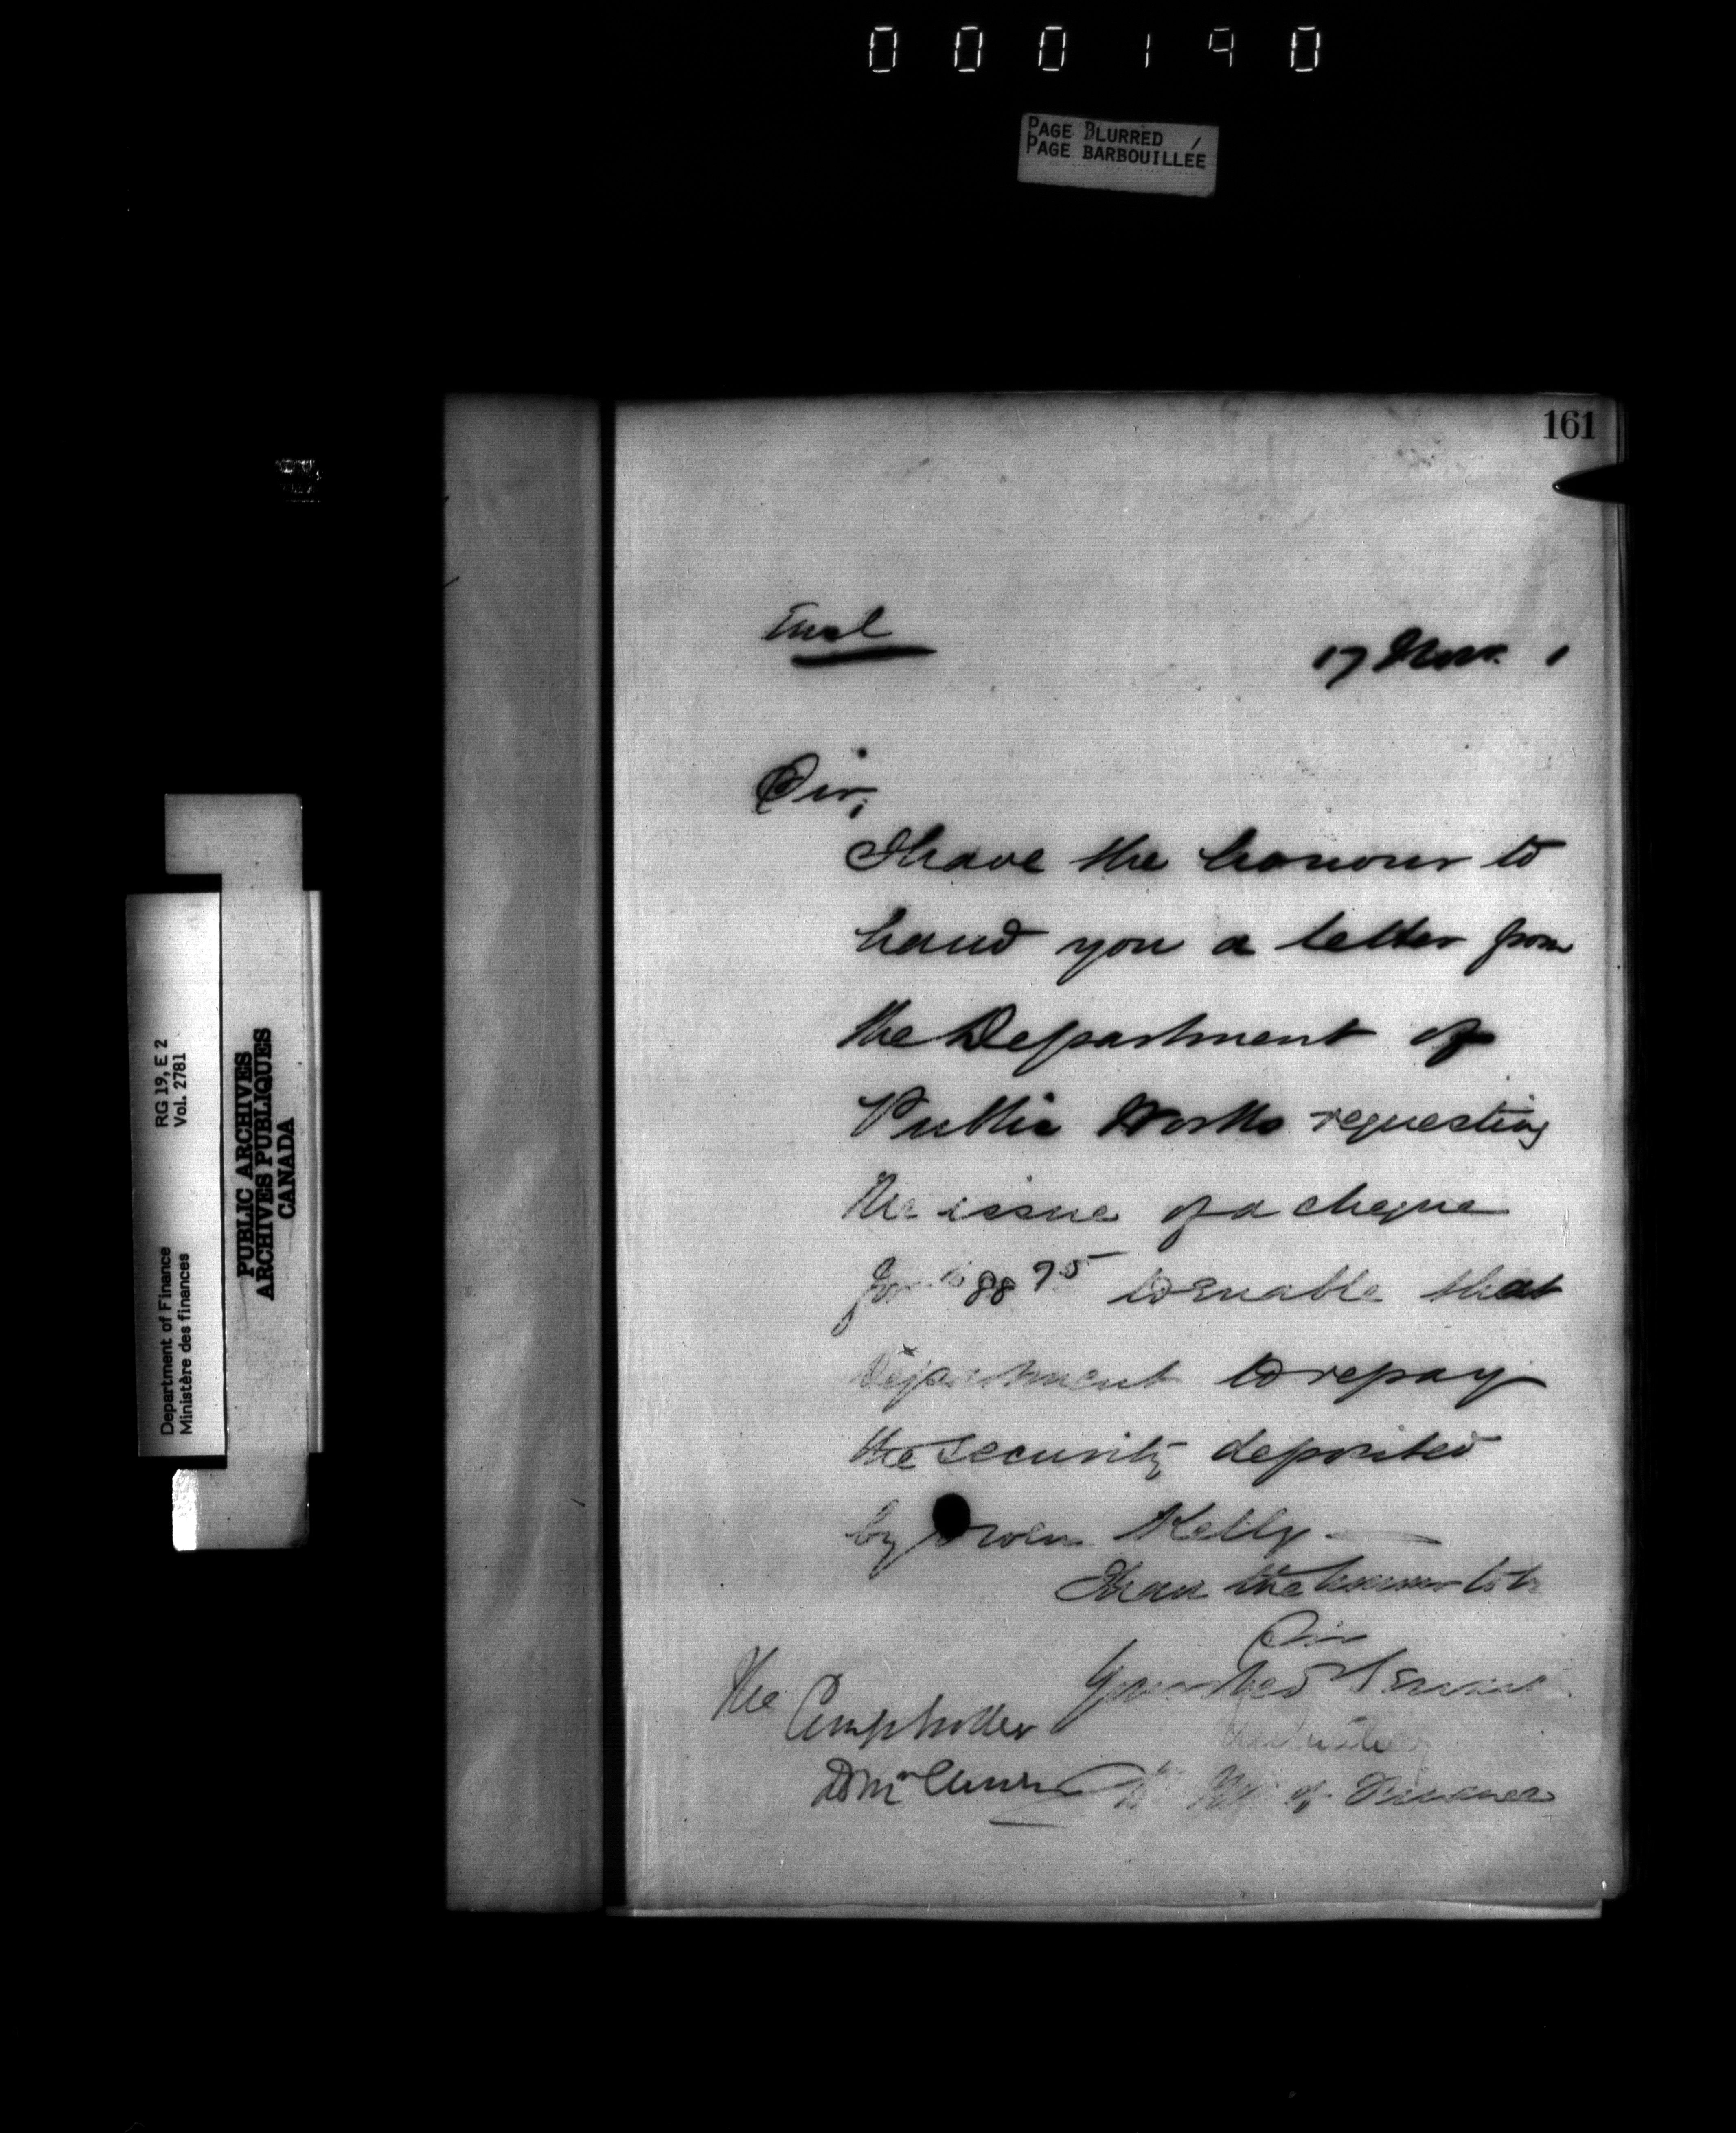 0 0 0 1 9 0
PAGE BLURRED
PAGE BARBOUILLÉE
161
Encl
17 Nov. 1
Sir,
I have the honour to
hand you a letter from
the Department of
Public Works requesting
the issue of a cheque
for $88 75 to enable that
Department to repay
the security deposited
by Owen Kelly
I have the honour to be
Sir
Your obed Servant
The Comptroller
of Finance
Department of Finance RG 19, E 2
Ministère des finances Vol. 2781
PUBLIC ARCHIVES
ARCHIVES PUBLIQUES
CANADA